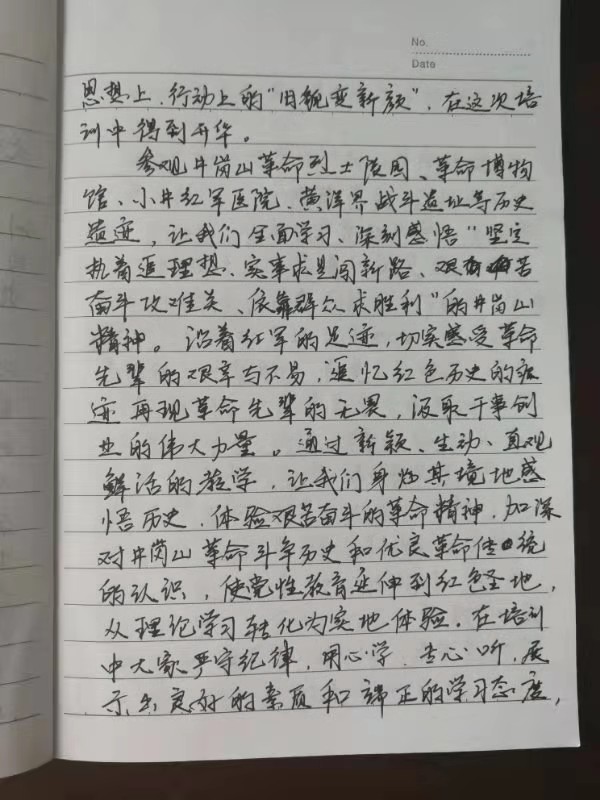 No.
Date
思想上、行动上的“旧貌变新颜”，在这次培
训中得到升华。
参观井岗山革命烈士陵园、革命博物
馆、小井红军医院、黄洋界战斗遗址等历史
遗迹，让我们全面学习、深刻感悟“坚定
执着追理想、实事求是闯新路、艰苦
奋斗攻难关、依靠群众求胜利”的井岗山
精神。沿着红军的足迹，切实感受革命
先辈的艰辛与不易，追忆红色历史的痕
迹再现革命先辈的无畏，汲取干事创
业的伟大力量。通过新颖、生动、直观
鲜活的教学，让我们身临其境地感
悟历史，体验艰苦奋斗的革命精神，加深
对井岗山革命斗争历史和优良革命传统
的认识，使党性教育延伸到红色圣地，
从理论学习转化为实地体验。在培训
中大家严守纪律，用心学、专心听，展
示出良好的素质和端正的学习态度，